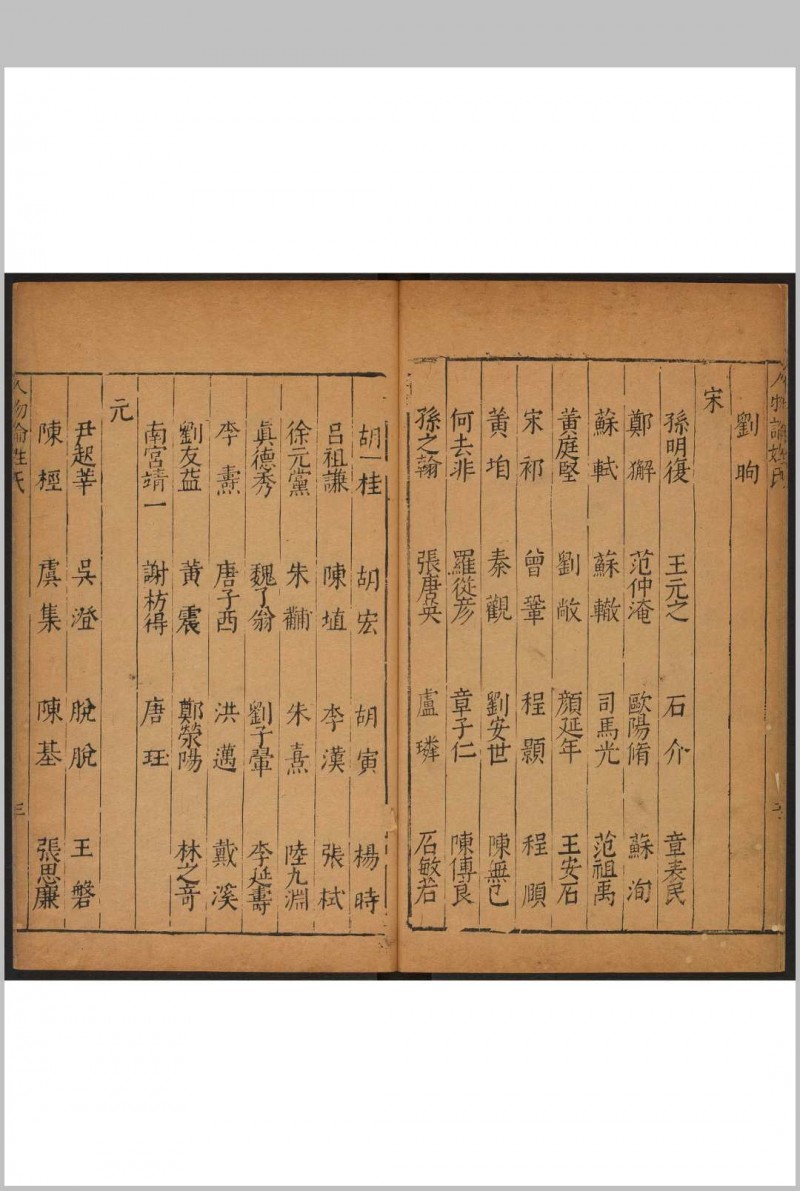 人物論姓氏
劉昫
宋
孫明復 王元之 石介 章表民
鄭獬 范仲淹 歐陽脩 蘇洵
蘇軾 蘇轍 司馬光 范祖禹
黃庭堅 劉敞 顏延年 王安石
宋祁 曾鞏 程顥 程頤
黃㽦 秦觀 劉安世 陳無已
何去非 羅從彥 章子仁 陳傅良
孫之翰 張唐英 盧璘 石敏若
胡一桂 胡宏 胡寅 楊時
呂祖謙 陳埴 李漢 張栻
徐元黨 朱黼 朱熹 陸九淵
真德秀 魏了翁 劉子翬 李延壽
李燾 唐子西 洪邁 戴溪
劉友益 黃震 鄭滎陽 林之奇
南宮靖一 謝枋得 唐珏
元
尹起莘 吳澄 脫脫 王磐
陳桱 虞集 陳基 張思廉
人物論姓氏 三